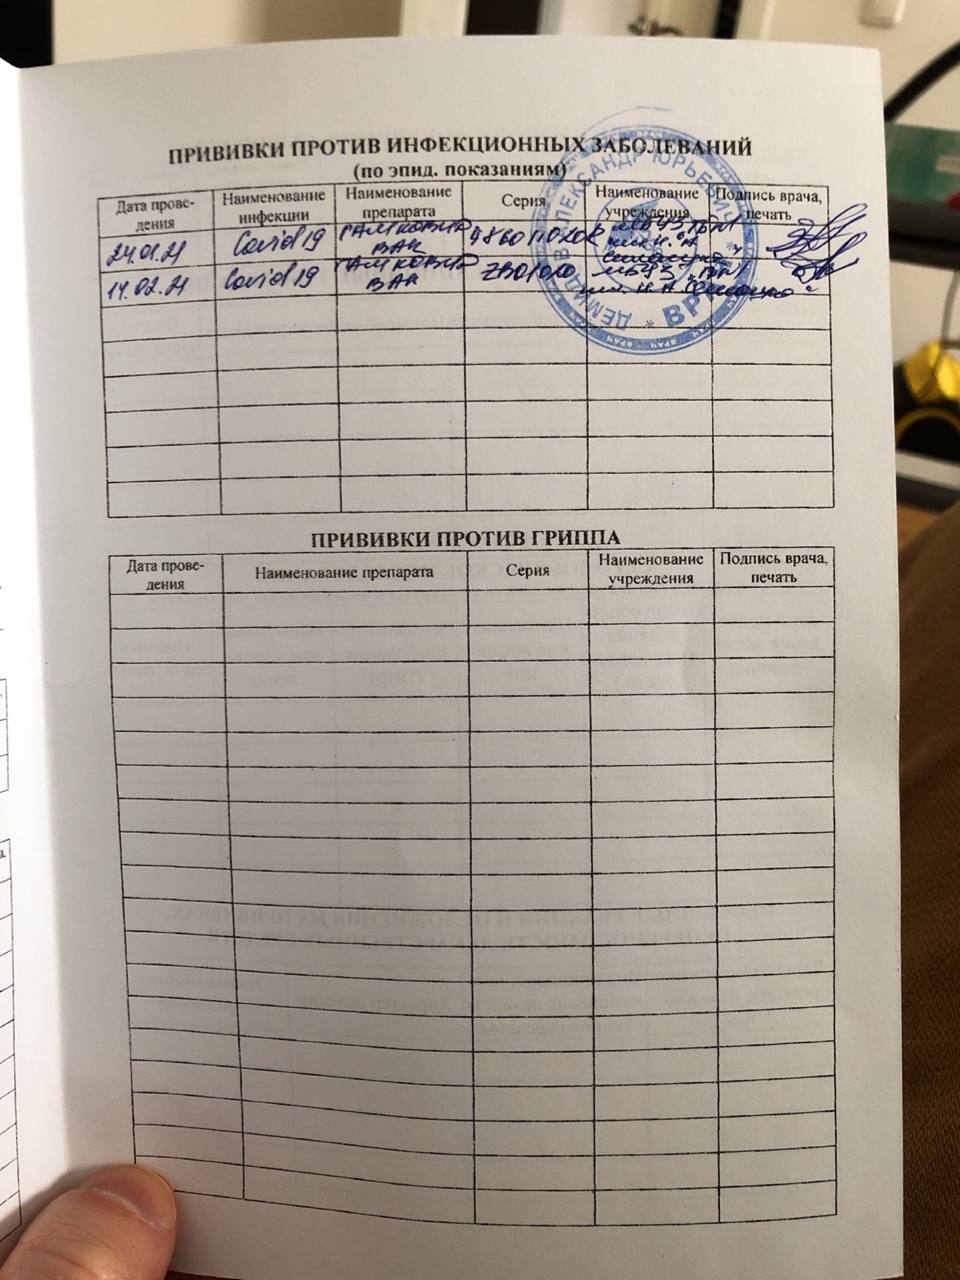 ПРИВИВКИ ПРОТИВ ИНФЕКЦИОННЫХ ЗАБОЛЕВАНИЙ
(по эпид. показаниям)
Дата прове-
дения
Наименование
инфекции
Наименование
препарата
Серия
Наименование
учреждения
Подпись врача,
печать
24.01.21 Covid 19
ГАМ КОВИД
ВАК
14.02.21 Covid 19
ГАМ КОВИД
ВАК
АЛЕКСАНДР ЮРЬЕВИЧ
ДЕМИДОВ
* ВРАЧ *
ПРИВИВКИ ПРОТИВ ГРИППА
Дата прове-
дения
Наименование препарата
Серия
Наименование
учреждения
Подпись врача,
печать